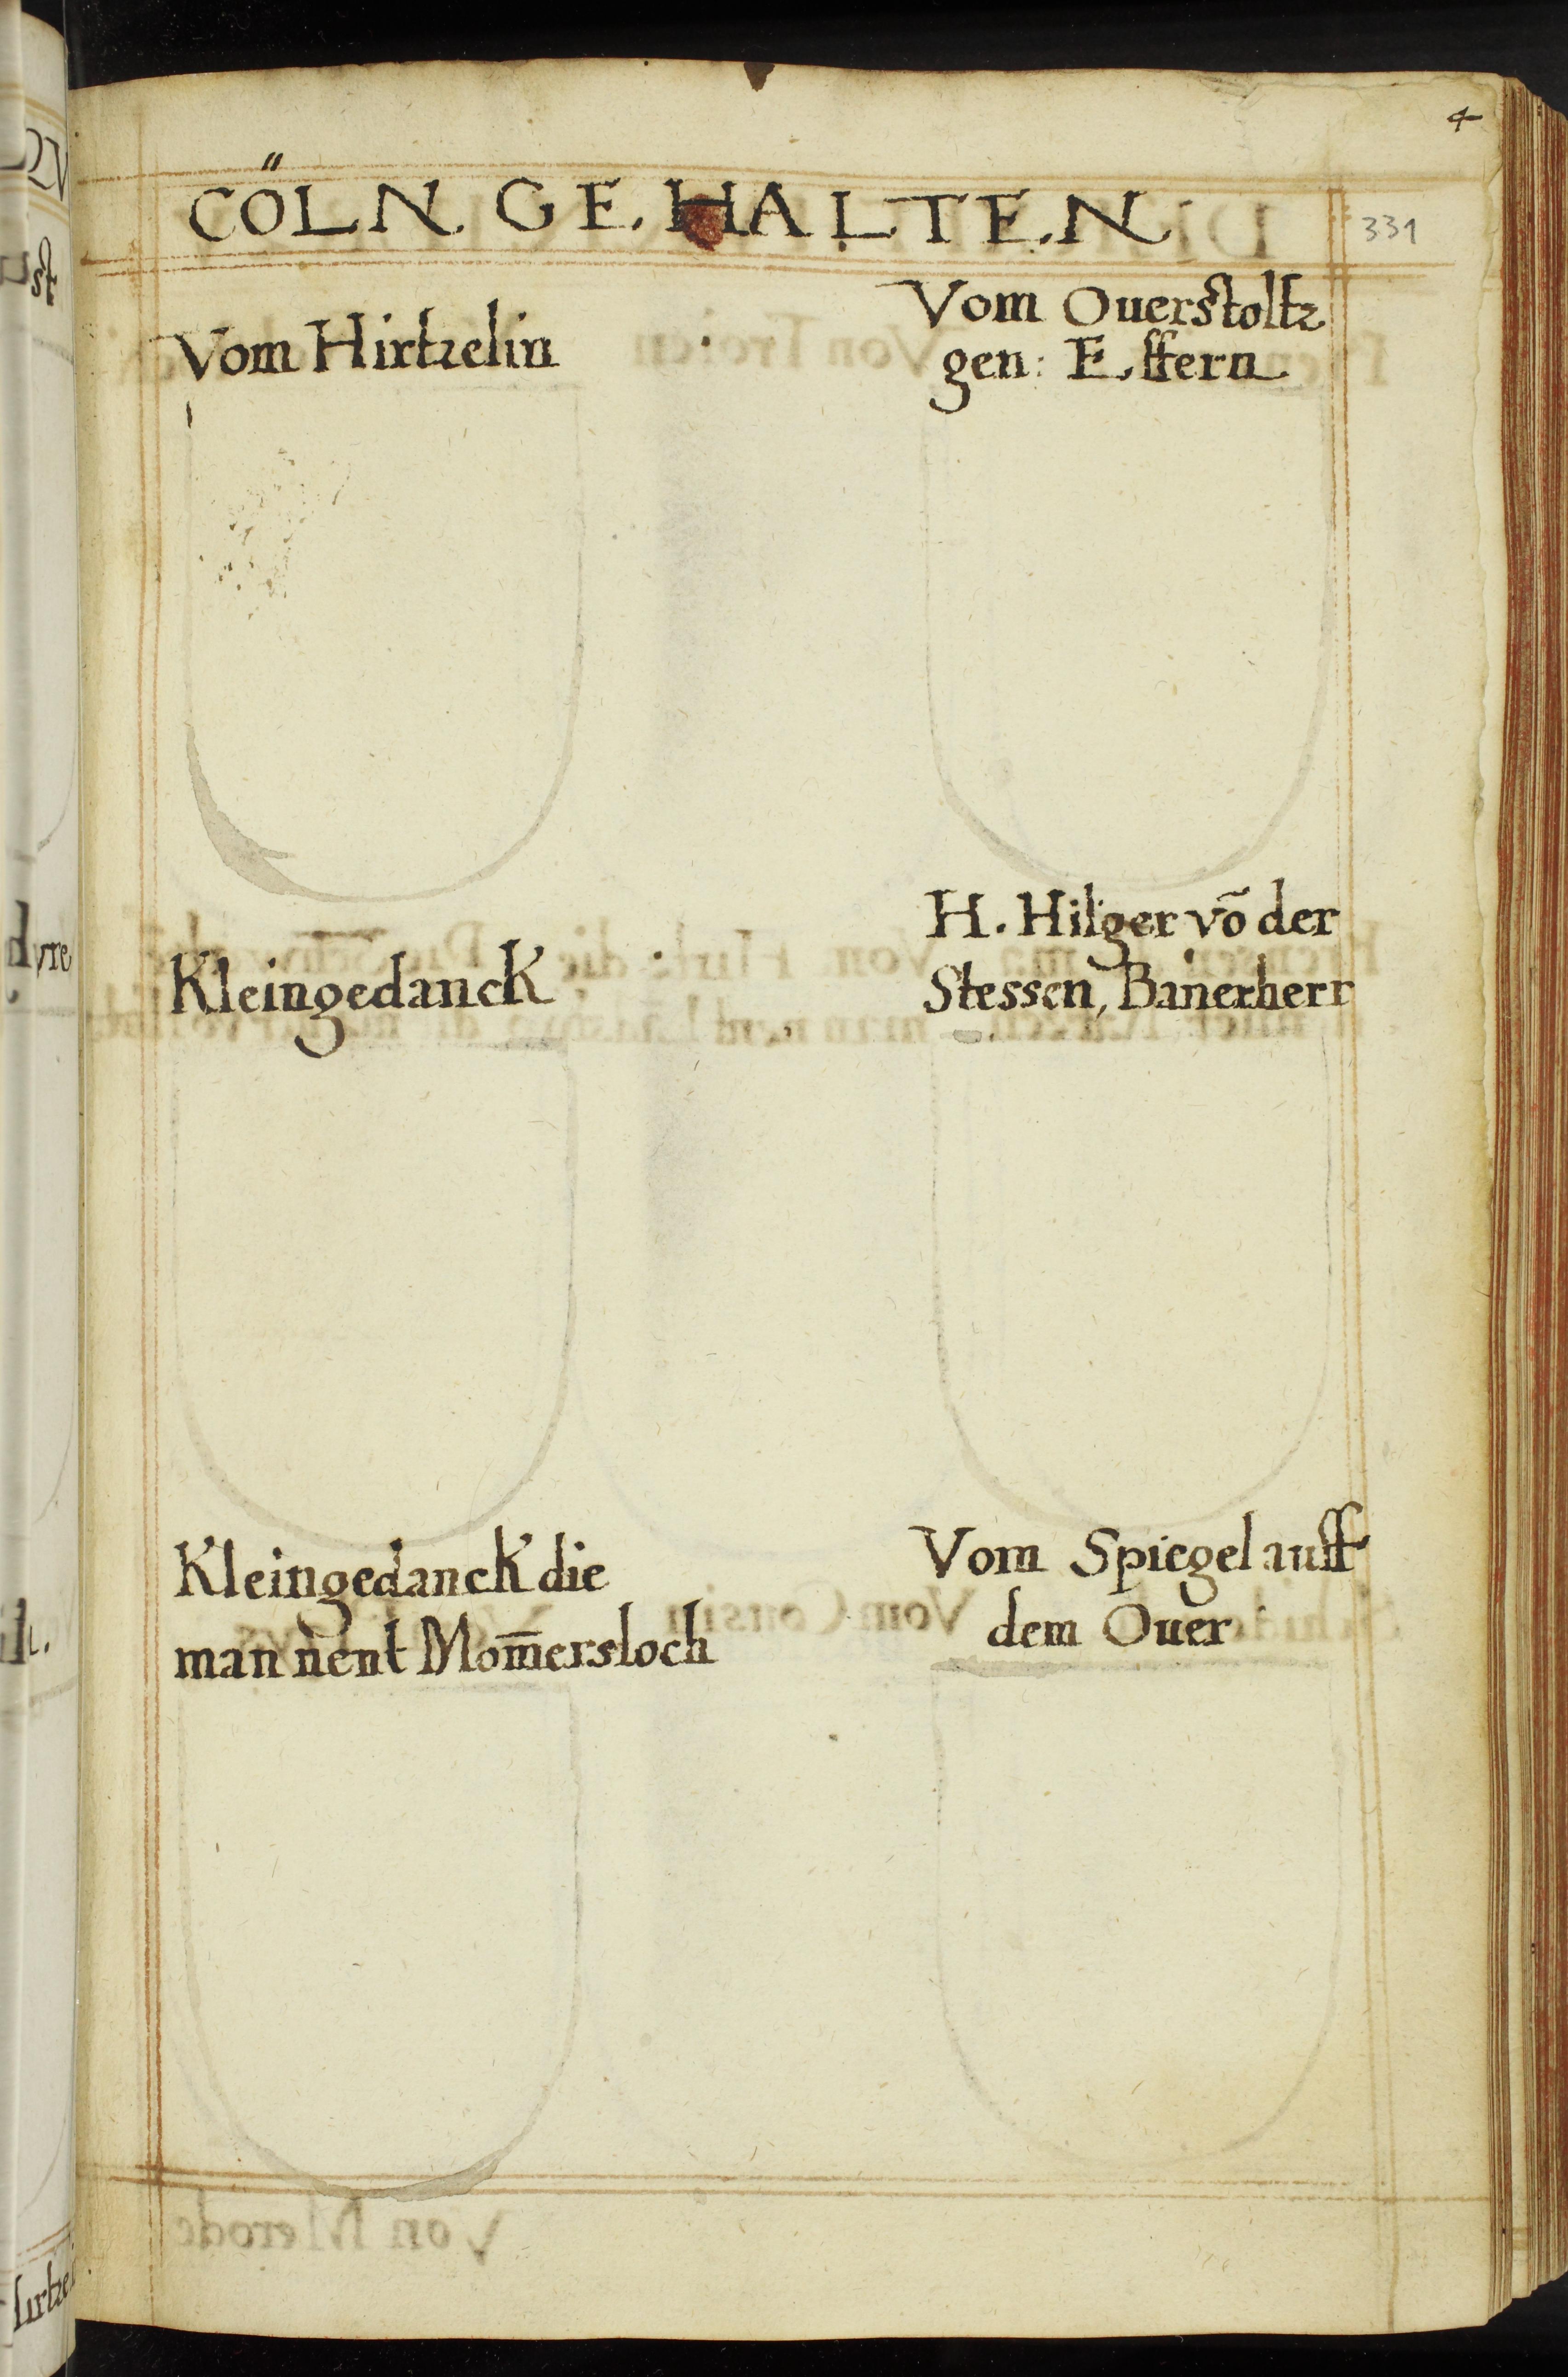 4
CÖLN GEHALTEN
331
Vom Hirtzelin
Vom Ouerstoltz
gen: Effern
Kleingedanck
H. Hilger võ der
Stessen, Banerherr
Kleingedanck die
man nent Mom̄ersloch
Vom Spiegel auff
dem Ouer